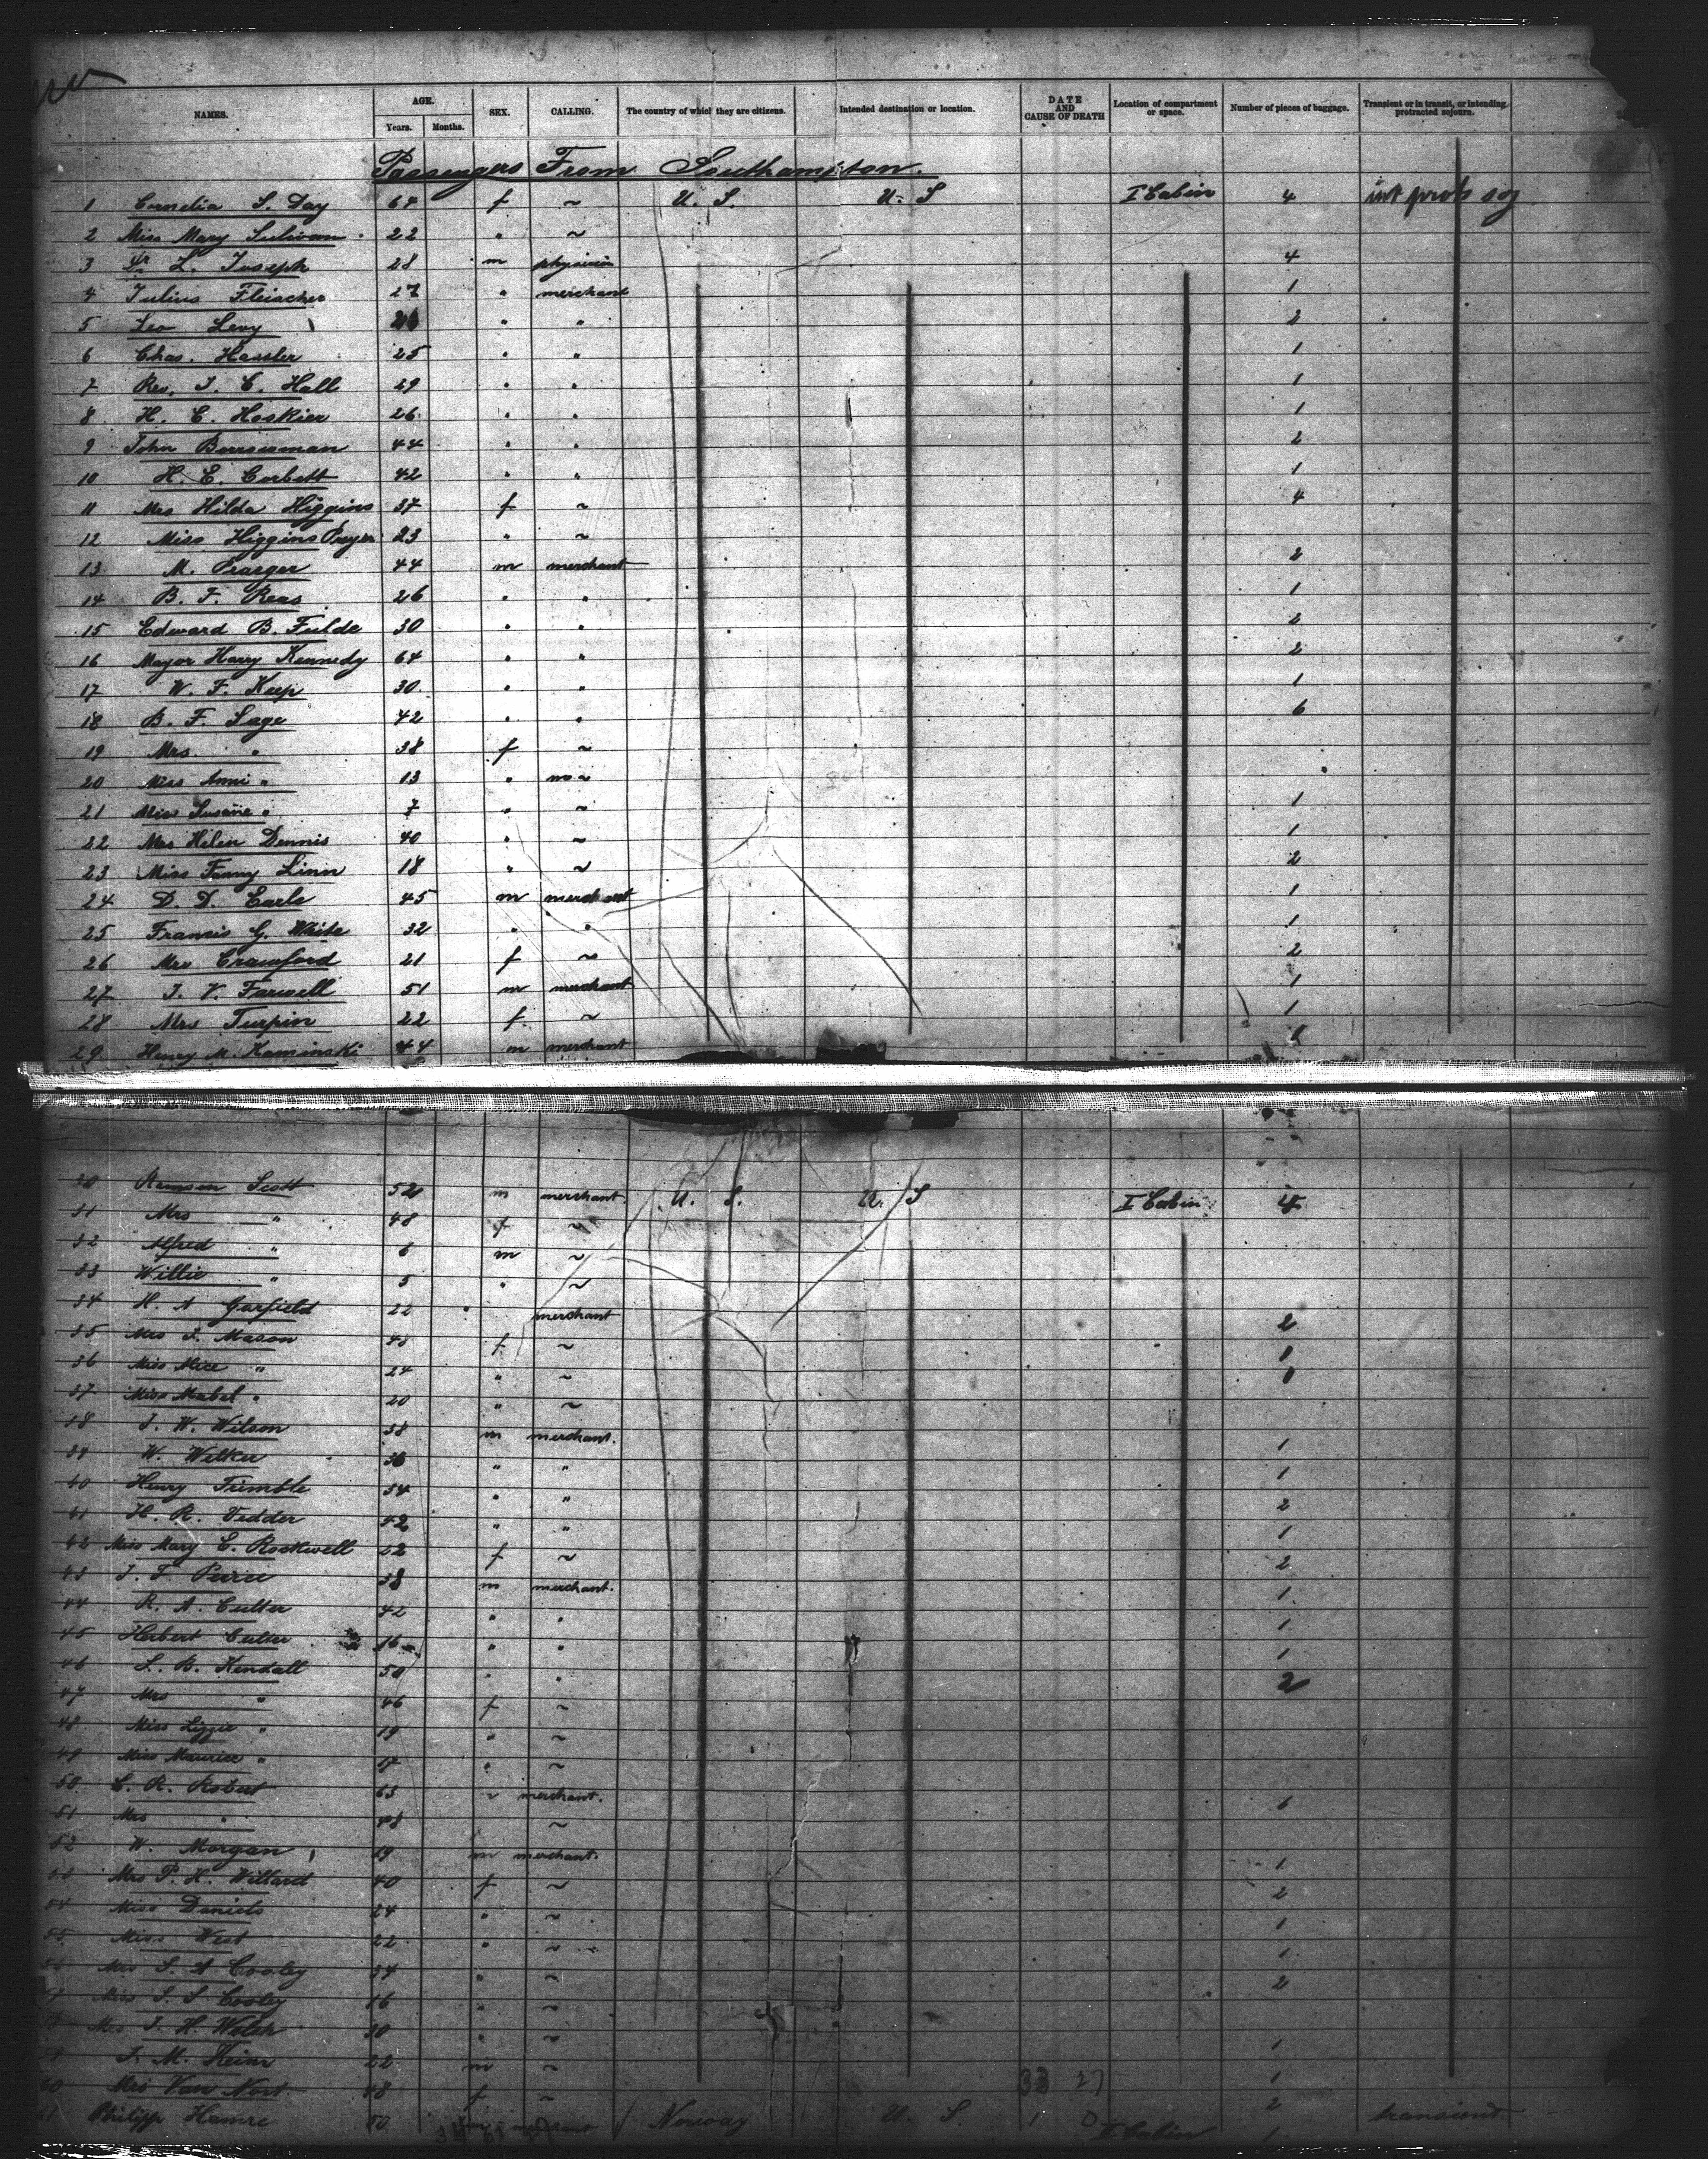 NAMES. AGE. Years. Months. SEX. CALLING. The country of which they are citizens. Intended destination or location. DATE AND CAUSE OF DEATH Location of compartment or space. Number of pieces of baggage. Transient or in transit, or intending protracted sojourn.
Passengers From Southampton.
1 Cornelia S. Day 64 f ~ U. S. U. S I Cabin 4 int prot so
2 Miss Mary Sulivan 22 " ~
3 Dr L. Joseph 28 m physician 4
4 Julius Fleischer 27 " merchant 1
5 Leo Levy " " 2
6 Chas. Hassler 25 " " 1
7 Rev. J. C. Hall 29 " " 1
8 H. C. Hoskier 26 " " 1
9 John 44 " " 2
10 H. E. Corbett 42 " " 1
11 Mrs Hilda Higgins 37 f ~ 4
12 Miss Higgins 23 " ~
13 M. Praeger 44 m merchant 2
14 B. F. Reas 26 " " 1
15 Edward B. Fulde 30 " " 2
16 Mayor Harry Kennedy 64 " " 2
17 W. F. Keep 30 " " 1
18 B. F. Sage 42 " " 6
19 Mrs " 38 f ~
20 Miss Anni " 13 " ~
21 Miss Susanne " 7 " ~ 1
22 Mrs Helen Dennis 40 " ~ 1
23 Miss Fanny Linn 18 " ~ 2
24 D. D. Earle 45 m merchant 1
25 Francis G. White 32 " " 1
26 Mrs Crawford 21 f ~ 2
27 J. V. Farwell 51 m merchant 1
28 Mrs Turpin 22 f ~ 1
29 Henry M. Kaminski 44 m merchant
30 Scott 52 m merchant U. S. U. S I Cabin 4
31 Mrs " 48 f ~
32 Alfred " 6 m ~
33 Willie " 5 " ~
34 H. A Garfield 22 " merchant 2
35 Mrs J. Mason 48 f ~ 1
36 Miss Alice " 24 " ~ 1
37 Miss Mabel " 20 " ~
38 J. W. Wilson 38 m merchant. 1
39 W. Welker 36 " " 1
40 Henry Trimble 54 " " 2
41 H. R. Vedder 42 " " 1
42 Miss Mary E. Rockwell 52 f ~ 2
43 J. F. Peirce 38 m merchant. 1
44 R. A. Culter 42 " " 1
45 Herbert Culter 16 " " 1
46 L. B. Kendall 50 " " 2
47 Mrs " 46 f ~
48 Miss Lizzie " 19 " ~
49 Miss Maurice " 17 " ~
50 C. R. Robert 63 ~ merchant. 6
51 Mrs " 48 ~
52 W. Morgan 19 m merchant. 1
53 Mrs P. H. Willard 40 f ~ 2
54 Miss Daniels 24 " ~ 1
55 Miss West 22 " ~ 1
56 Mrs S. A Cooley 54 " ~ 2
57 Miss S. S Cooley 16 " ~
J. H. Welsh 30 " ~ 1
J. M. Heim 22 m ~ 1
60 Mrs Van Nort 48 f ~ 33 27 2
61 Philipp Hamre 50 m merchant Norway U S. 1 0 I Cabin 1 transient